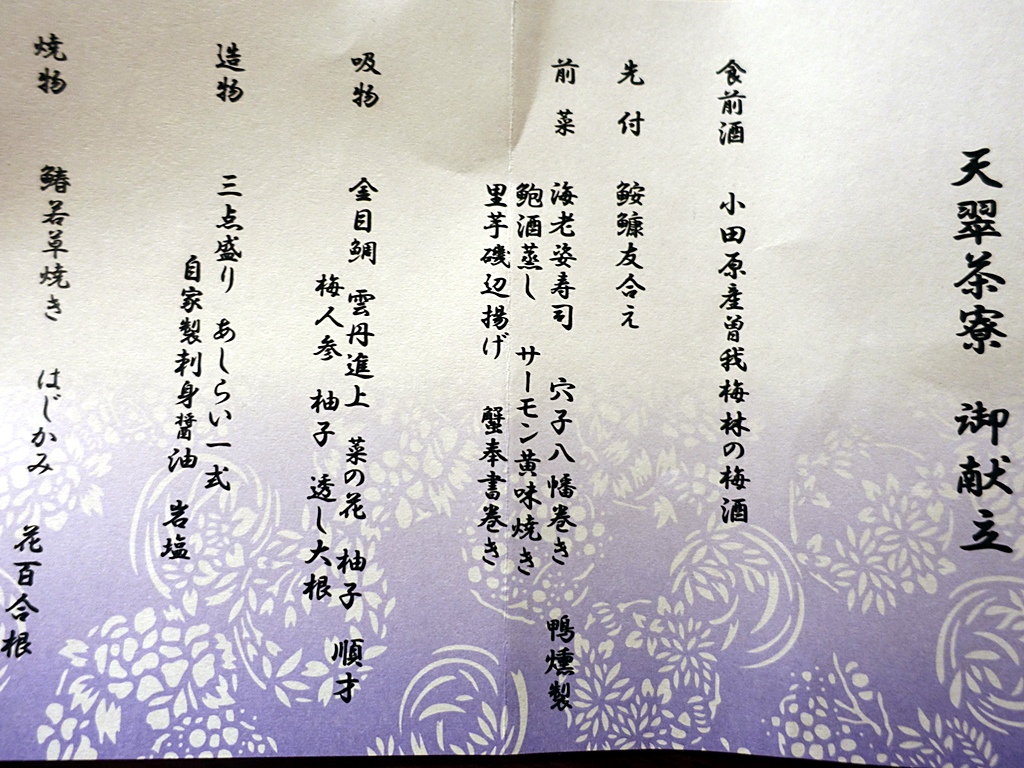 天翠茶寮 御献立
食前酒 小田原産曽我梅林の梅酒
先付 鮟鱇友合え
前菜 海老姿寿司 穴子八幡巻き 鴨燻製
鮑酒蒸し サーモン黄味焼き
里芋磯辺揚げ 蟹奉書巻き
吸物 金目鯛 雲丹進上 菜の花 柚子 順才
梅人参 柚子 透し大根
造物 三点盛り あしらい一式
自家製刺身醤油 岩塩
焼物 鰆若草焼き はじかみ 花百合根